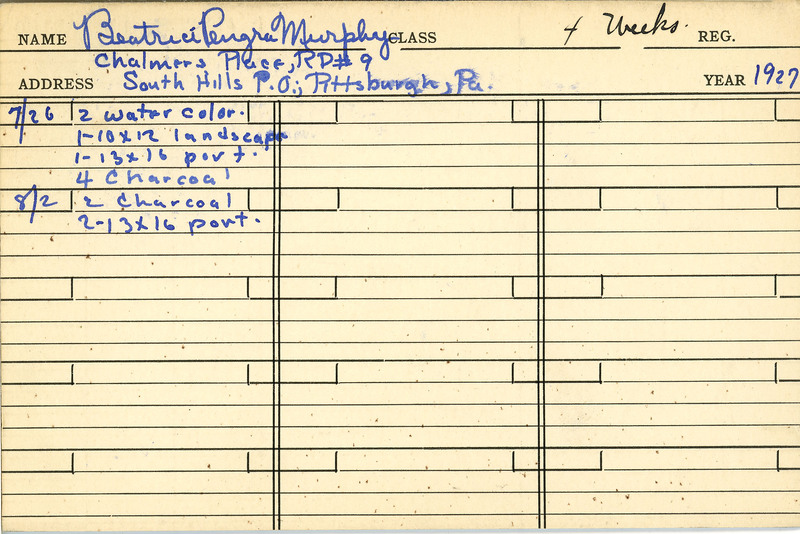 NAME Beatrice Pengra Murphy CLASS 4 Weeks. REG.
Chalmers Place, RD# 9
ADDRESS South Hills P.O., Pittsburgh, Pa. YEAR 1927
7/26 2 water color.
1-10x12 landscape
1-13x16 port.
4 Charcoal
8/2 2 Charcoal
2-13x16 port.